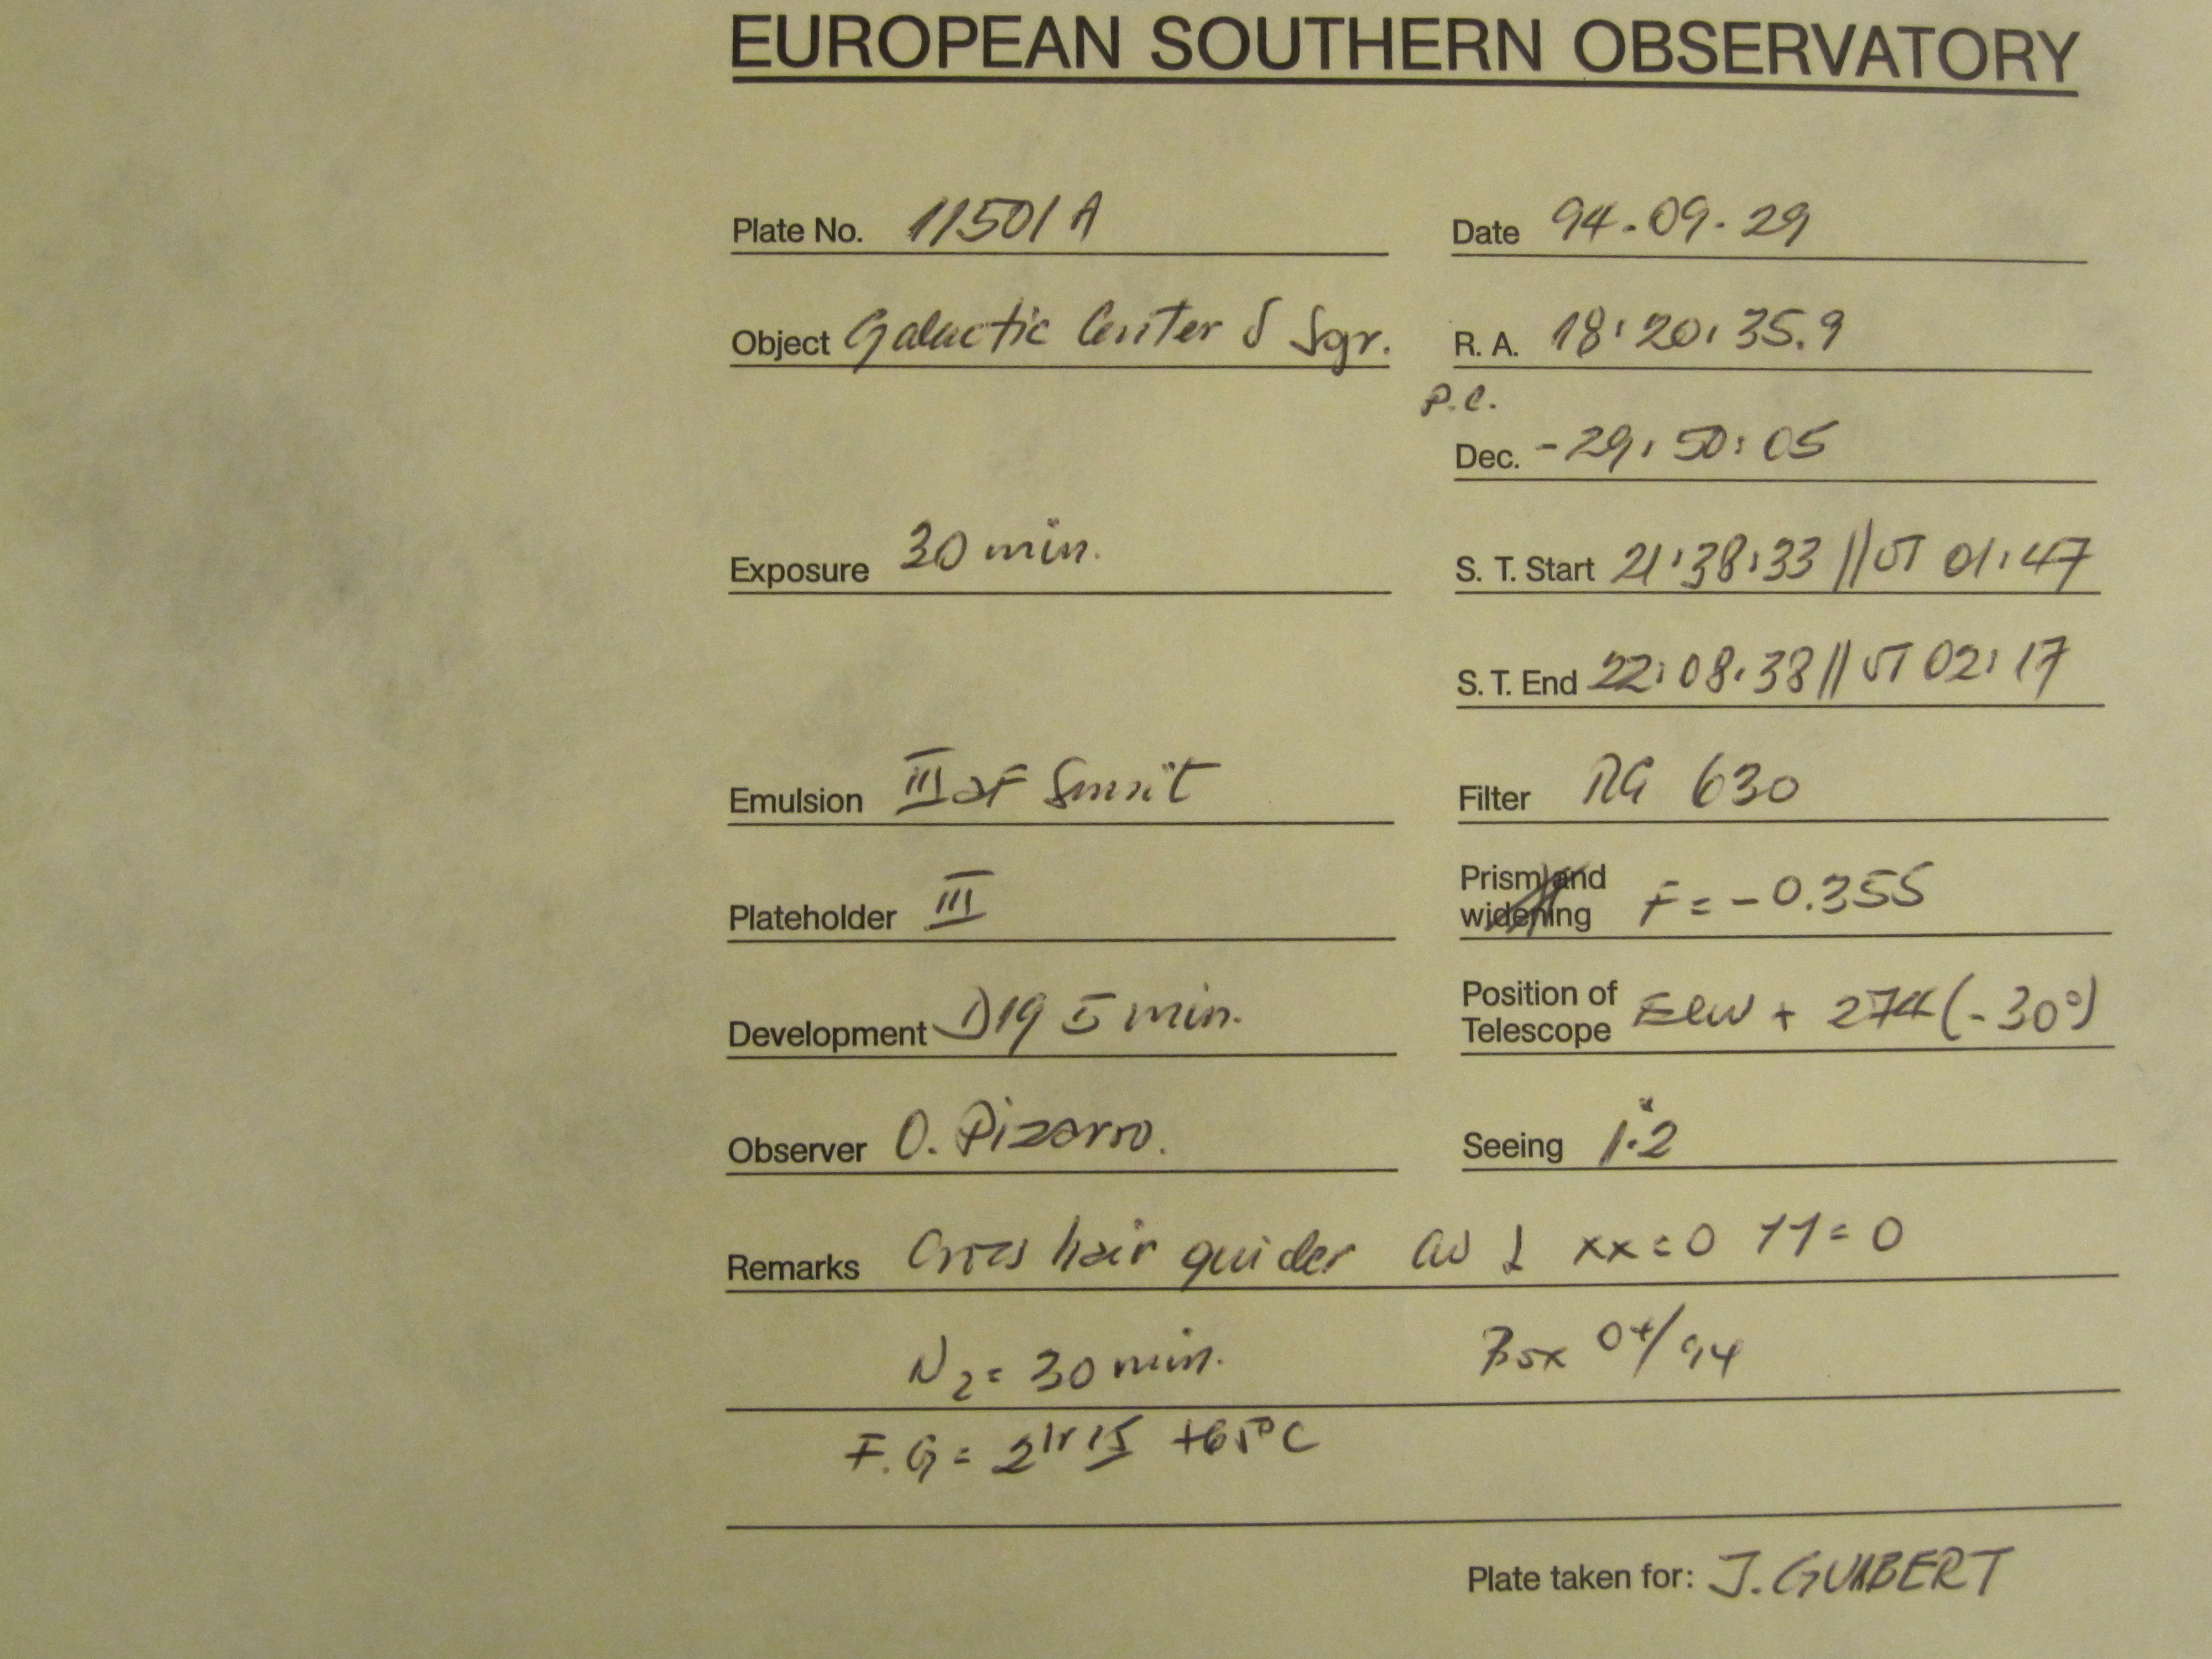 EUROPEAN SOUTHERN OBSERVATORY
Plate No. 11501 A
Date 94.09.29
Object Galactic Center δ Sgr.
R. A. 18:20:35.9
P.C.
Dec. -29:50:05
Exposure 30 min.
S. T. Start 21:38:33 // UT 01:47
S. T. End 22:08:38 // UT 02:17
Emulsion III aF
Filter RG 630
Prism and
widening F = -0.355
Plateholder III
Development D19 5 min.
Position of
Telescope E&W + 274 (-30°)
Observer O. Pizarro.
Seeing 1.2
Remarks Cross hair guider xx=0 YY=0
N2 = 30 min. Box 04/94
F.G = 2hr 15 +65°C
Plate taken for: J. GUIBERT